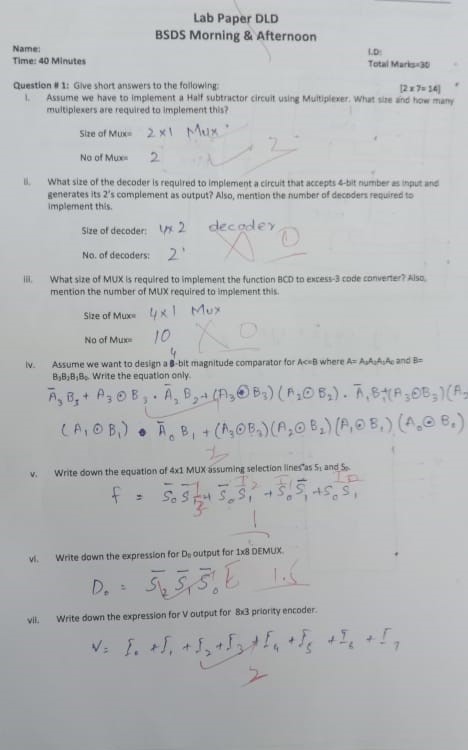 Lab Paper DLD
BSDS Morning & Afternoon
Name:
I.D:
Time: 40 Minutes
Total Marks=30
Question # 1: Give short answers to the following:
[2 x 7= 14]
i. Assume we have to implement a Half subtractor circuit using Multiplexer. What size and how many
multiplexers are required to implement this?
Size of Mux= 2x1 Mux
No of Mux= 2
2
ii. What size of the decoder is required to implement a circuit that accepts 4-bit number as input and
generates its 2's complement as output? Also, mention the number of decoders required to
implement this.
Size of decoder: 4x2 decoder
0
No. of decoders: 2
iii. What size of MUX is required to implement the function BCD to excess-3 code converter? Also,
mention the number of MUX required to implement this.
Size of Mux= 4x1 Mux
No of Mux= 10
0
4
iv. Assume we want to design a 8-bit magnitude comparator for A<=B where A= A₃A₂A₁A₀ and B=
B₃B₂B₁B₀. Write the equation only.
A̅₃B₃ + A₃⊙B₃ . A̅₂B₂ + (A₃⊙B₃)(A₂⊙B₂) . A̅₁B₁+(A₃⊙B₃)(A₂
(A₁⊙B₁) . A̅₀B₁ + (A₃⊙B₃)(A₂⊙B₂)(A₁⊙B₁)(A₀⊙B₀)
v. Write down the equation of 4x1 MUX assuming selection lines as S₁ and S₀.
f = S̅₀S̅₁ + S̅₀S₁ + S₀S̅₁ + S₀S₁
1
vi. Write down the expression for D₀ output for 1x8 DEMUX.
D₀ = S̅₂S̅₁S̅₀ E
1.5
vii. Write down the expression for V output for 8x3 priority encoder.
V= I₀ + I₁ + I₂ + I₃ + I₄ + I₅ + I₆ + I₇
2